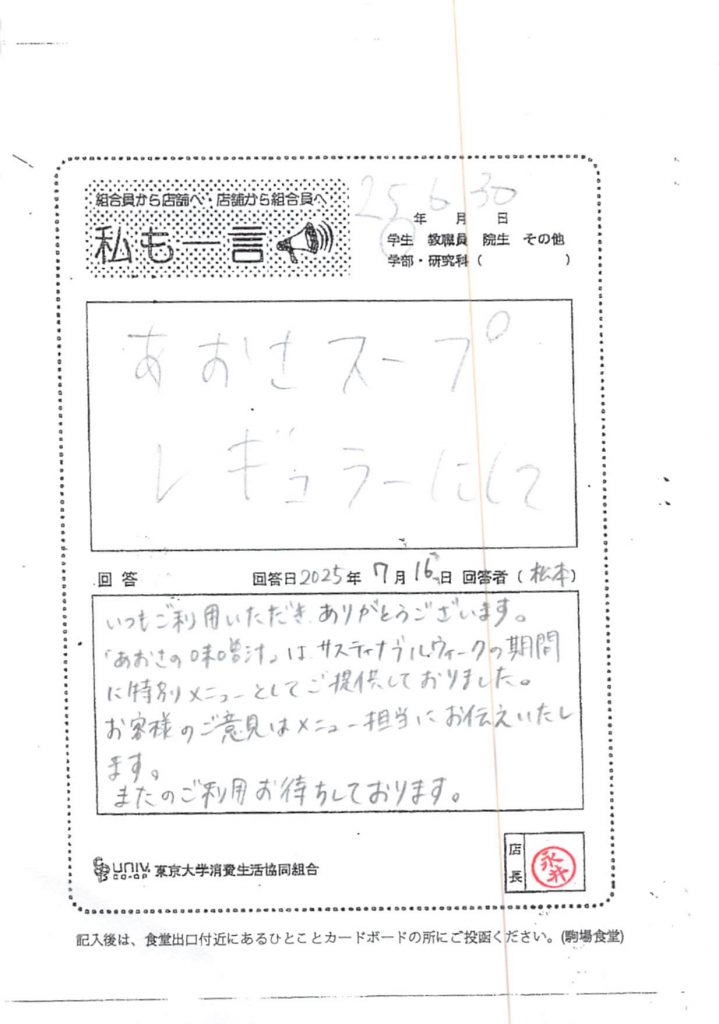 組合員から店舗へ・店舗から組合員へ
私も一言
25 6 30
年 月 日
学生 教職員 院生 その他
学部・研究科 ( )
あおさスープ
レギュラーにして
回 答 回答日2025年 7月16日 回答者 ( 松本 )
いつもご利用いただき ありがとうございます。
「あおさの味噌汁」は サスティナブルウィークの期間
に特別メニューとしてご提供しておりました。
お客様のご意見はメニュー担当にお伝えいたし
ます。
またのご利用お待ちしております。
UNIV. CO-OP 東京大学消費生活協同組合
店長
永井
記入後は、食堂出口付近にあるひとことカードボードの所にご投函ください。(駒場食堂)